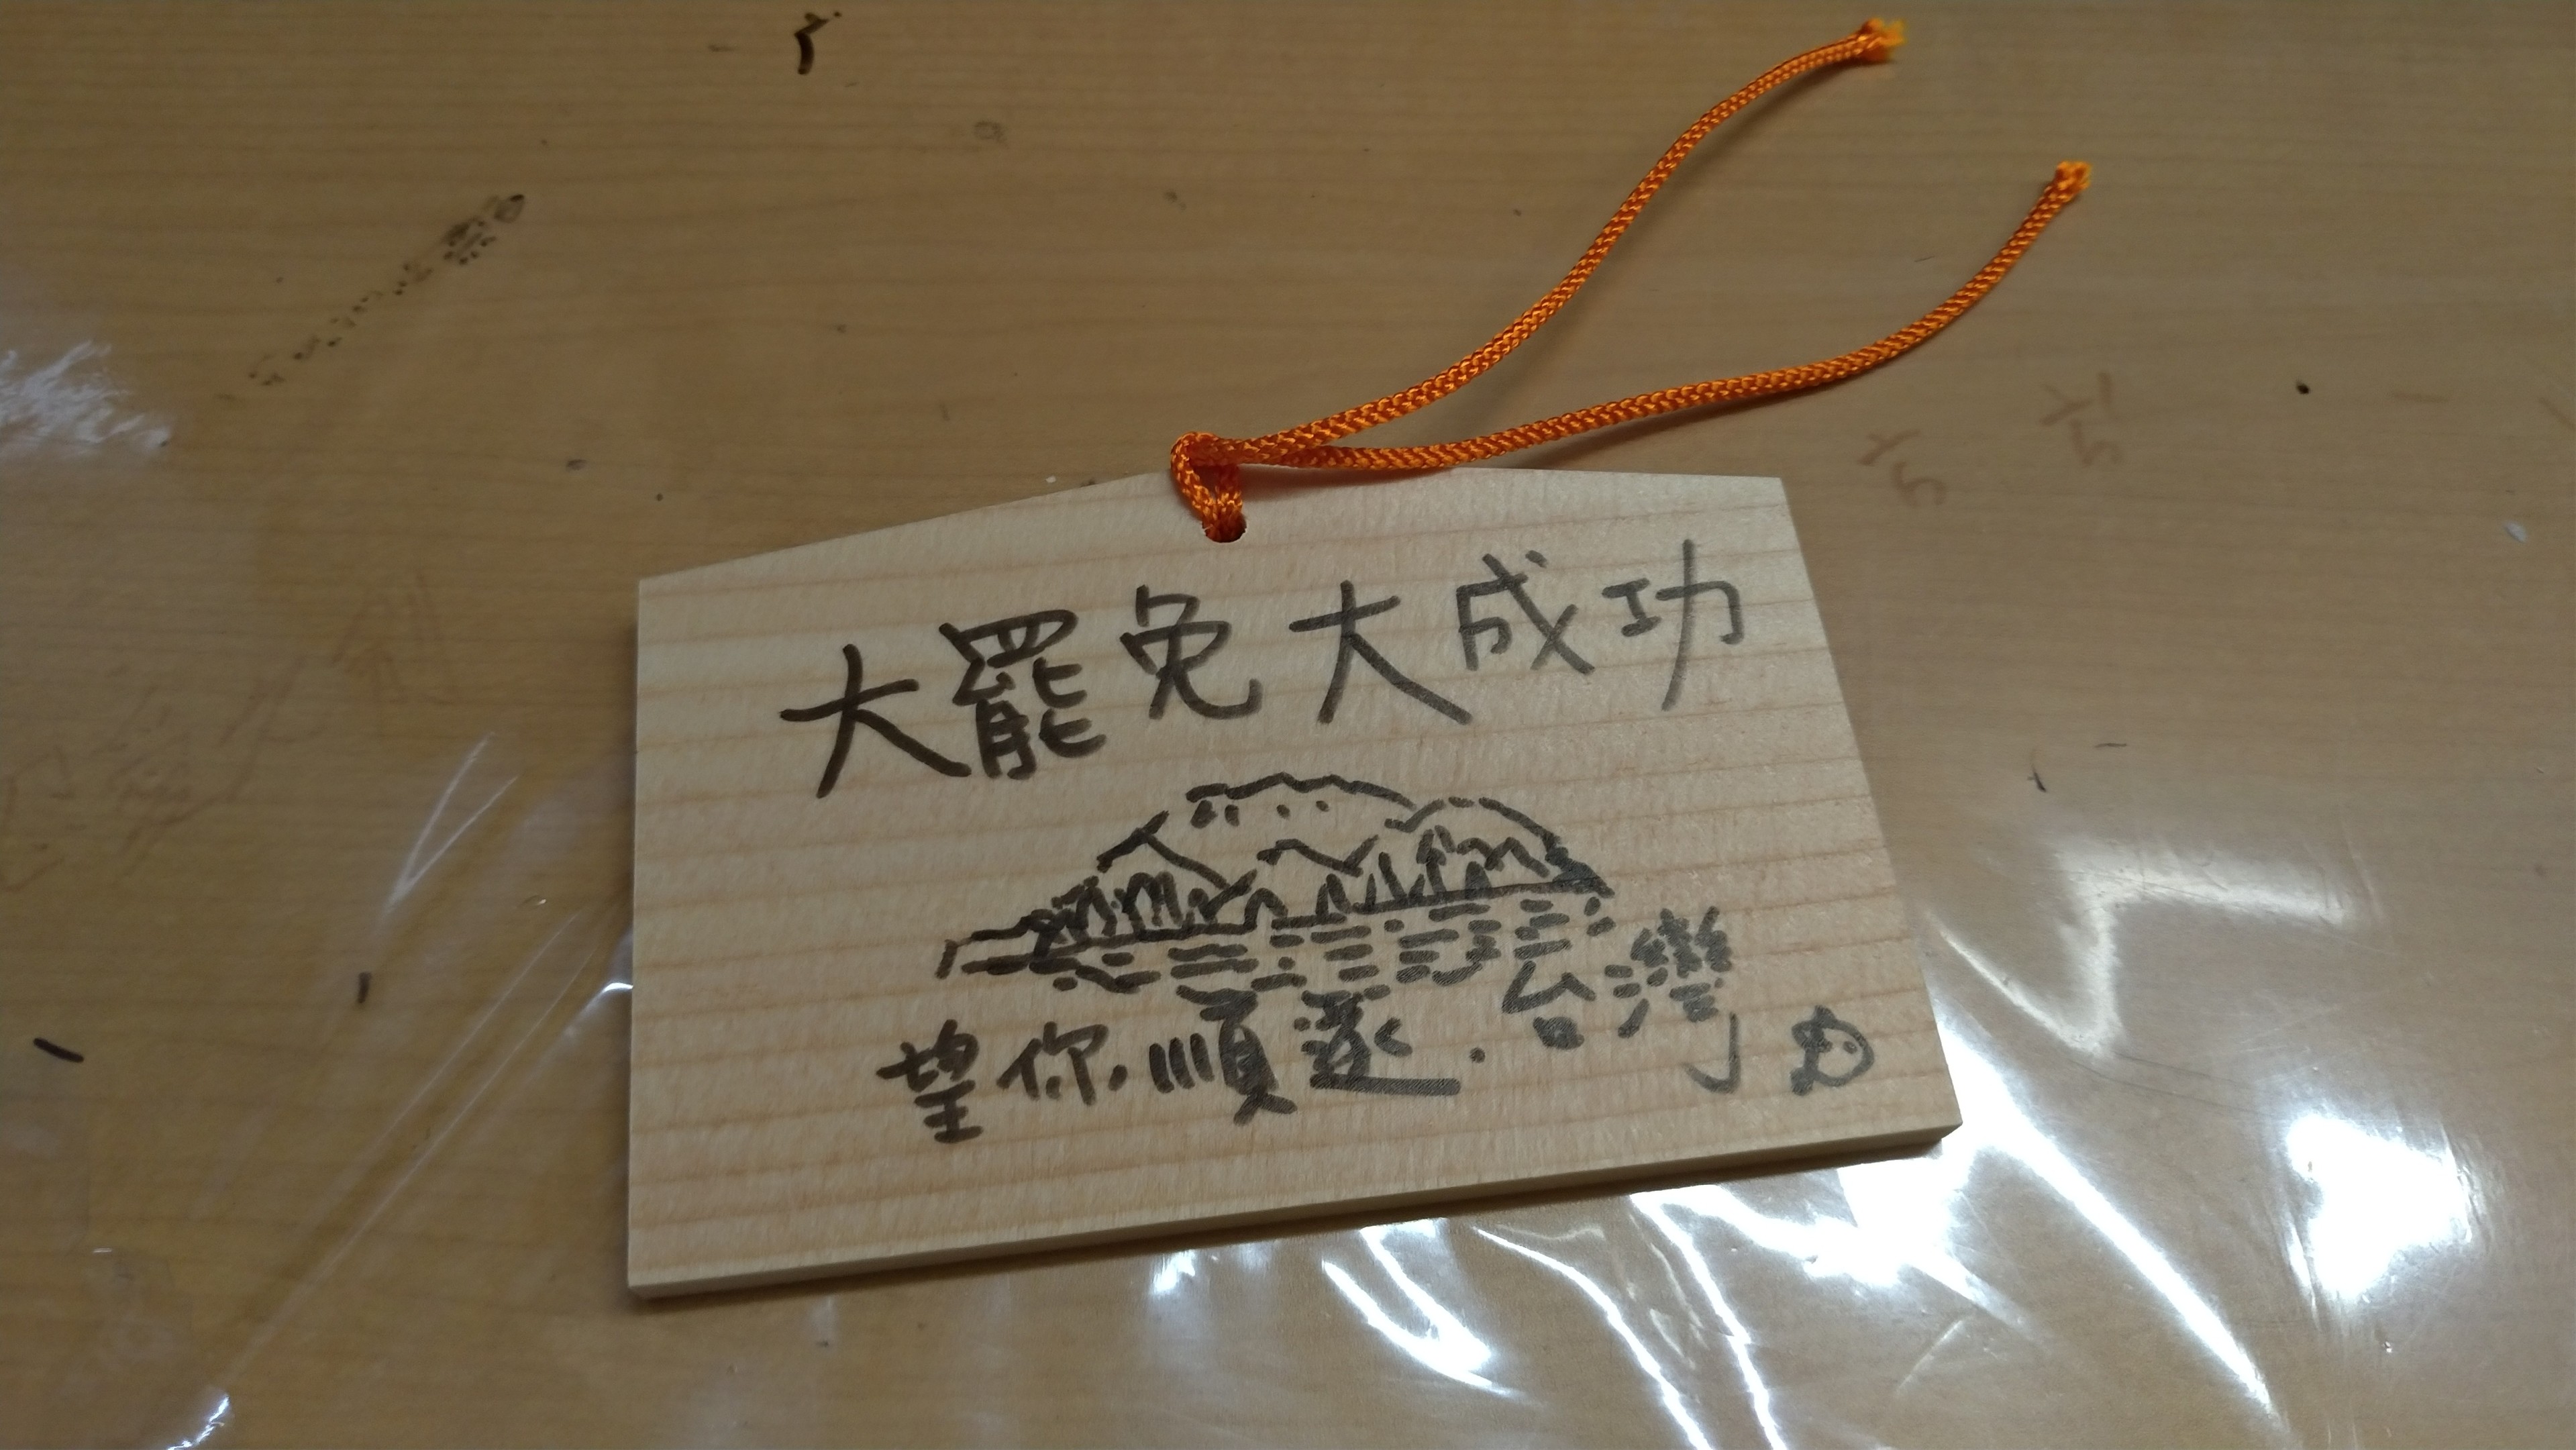 大罷免大成功
望你順遂．台灣